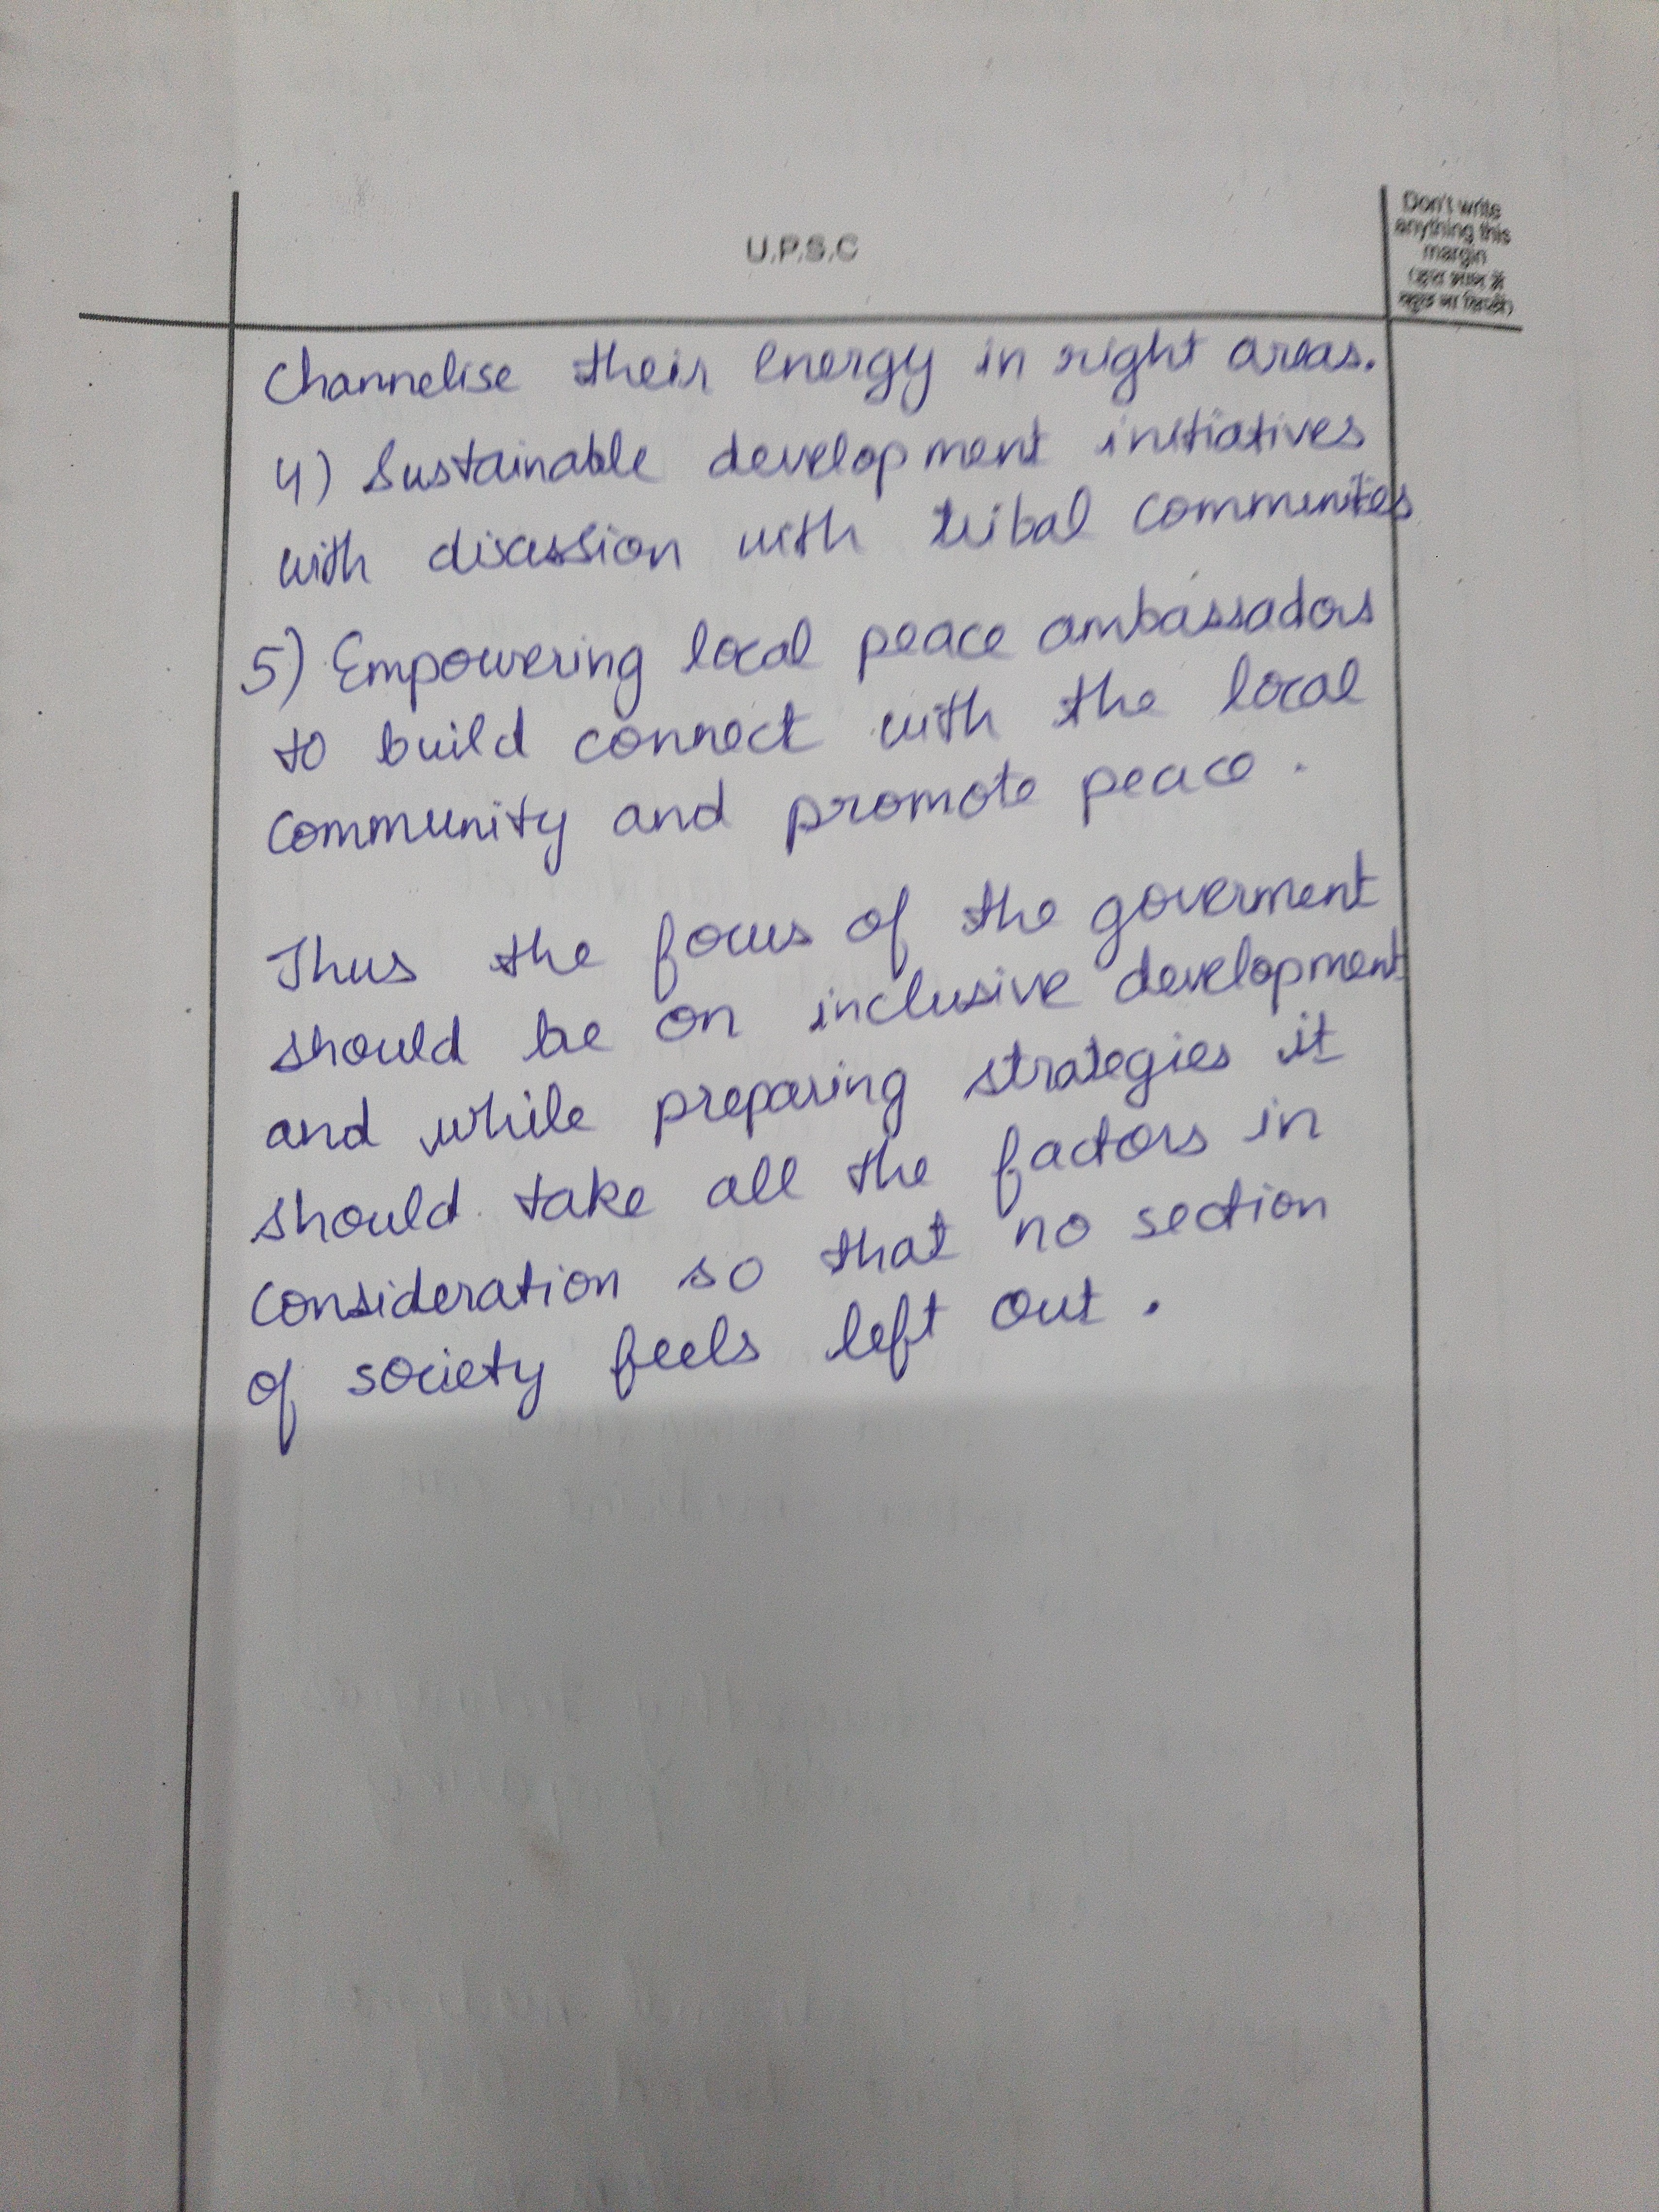 U.P.S.C
Don't write
anything this
margin
(इस भाग में
कुछ ना लिखें)
Channelise their energy in right areas.
4) Sustainable development initiatives
with discussion with tribal communities
5) Empowering local peace ambassadors
to build connect with the local
community and promote peace.
Thus the focus of the goverment
should be on inclusive development
and while preparing strategies it
should take all the factors in
consideration so that no section
of society feels left out.